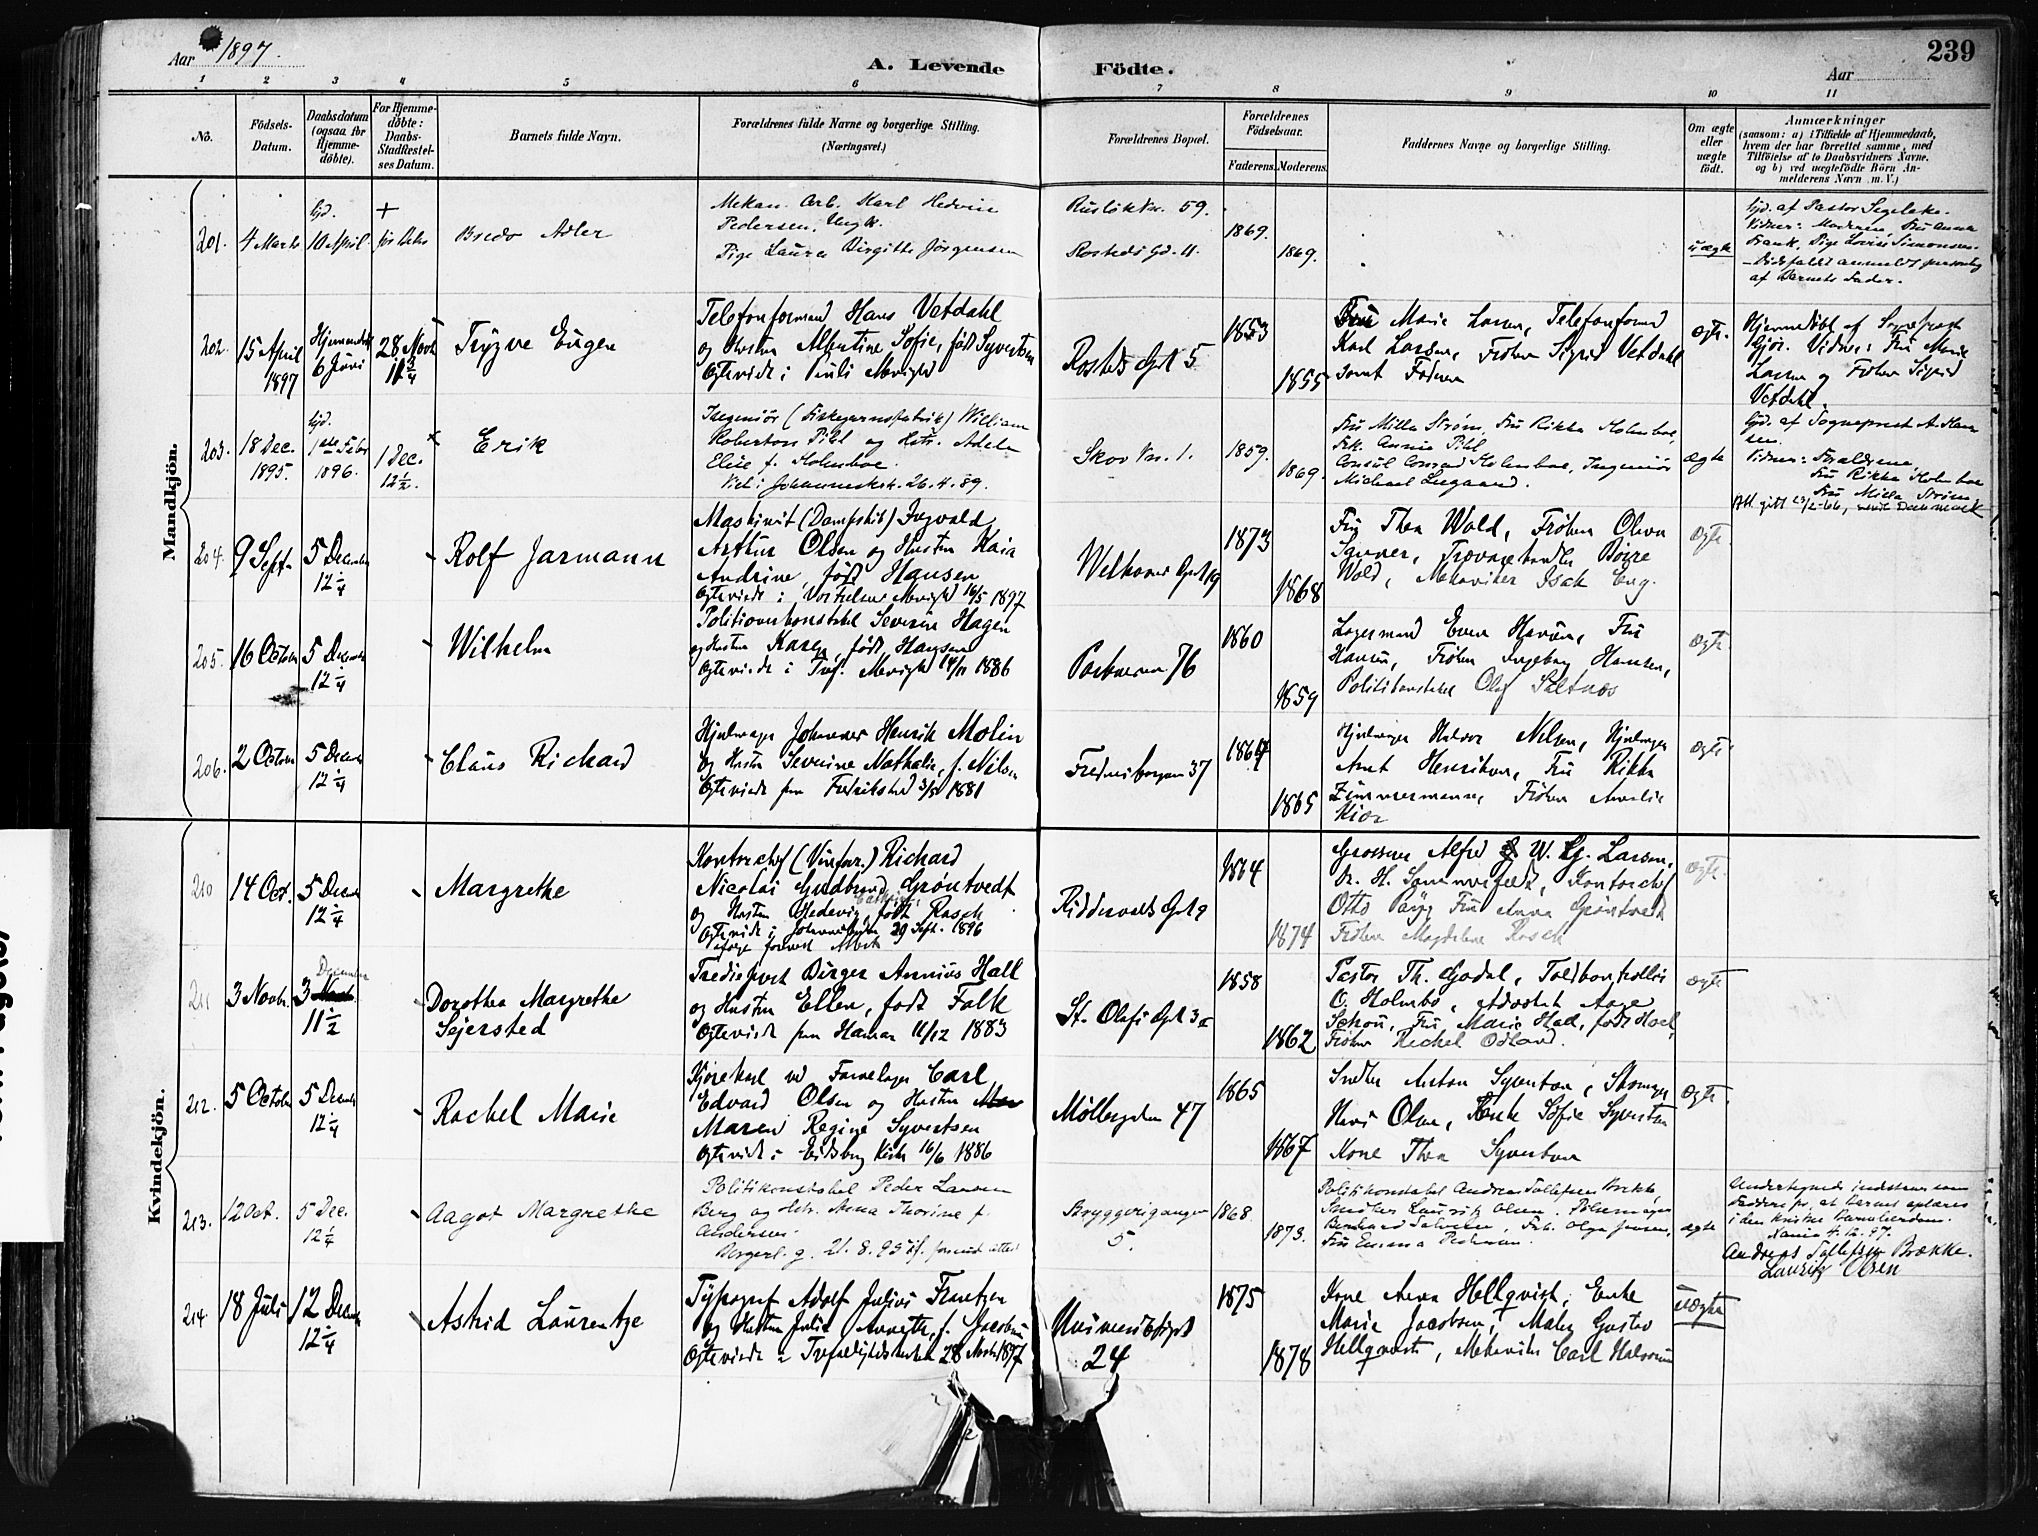 Aar 1897.
A. Levende
Födte.
Aar
239
1 2 3 4 5 6 7 8 9 10 11
No.
Födsels-
Datum.
Daabsdatum
(ogsaa for
Hjemme-
döbte).
For Hjemme-
döbte:
Daabs-
Stadfæstel-
ses Datum.
Barnets fulde Navn.
Forældrenes fulde Navne og borgerlige Stilling.
(Næringsvei.)
Forældrenes Bopæl.
Forældrenes
Födselsaar.
Faderens. Moderens.
Faddernes Navne og borgerlige Stilling.
Om ægte
eller
uægte
födt.
Anmærkninger
(saasom: a) i Tilfælde af Hjemmedaab,
hvem der har forrettet samme, med
Tilföielse af to Daabsvidners Navne.
og b) ved uægtefödte Börn An-
melderens Navn m. V.)
Mandkjön.
201. 4 Marts
hjd.
10 April
+
før Debs
Bredo Adler
Mekan. Arb. Karl Hedvin
Pedersen, Ungk.
Pige Laura Birgitte Jørgensen
Rusløkkv. 59.
Rosteds Gd. 11.
1869.
1869.
uægte
hjd. af Pastor Segelcke.
Vidner: Moderen, Fru Anna
Frank, Pige Lovise Simonsen.
- Dødsfaldt anmeldt personlig
af Barnets Fader.
202. 15 April
1897
Hjemmedøbt
6 Juni
28 Novb
11 3/4
Trygve Eugen
Telefonformand Hans Vetdahl
og Hustru Albertine Sofie, født Syvertsen
Ægteviede i Pauli Menighed
Rosteds Gade 5
1853
1855
Fru Marie Larsen, Telefonformd
Karl Larsen, Frøken Sigrid Vetdahl
samt Faderen
ægte.
Hjemmedøbt af Sogneprest
Gjør. Vidner: Fru Marie
Larsen og Frøken Sigrid
Vetdahl.
203. 18 Dec.
1895.
hjd.
1ste Febr
1896.
1 Dec.
12 1/2.
Erik
Ingeniør (Fiskegarnsfabrik) William
Robertson Pihl og Hstr. Adele
Elise f. Holmboe.
Viet i Johanneskrk. 26.4.89.
Skov Vn. 1.
1859.
1869.
Fru Milla Strøm, Fru Rikka Holmboe,
Frk. Annie Pihl
Consul Conrad Holmboe, Ingeniør
Michael Leegaard.
ægte
hjd. af Sogneprest A. Han-
sen.
Vidner: Forældrene,
Fru Rikka Holmboe
Fru Milla Strøm
Att. gitt 23/2-66, sendt Danmark
204. 9 Septr
5 December
12 1/4
Rolf Jarmann
Maskinist (Dampskib) Ingvald
Arthur Olsen og Hustru Kaia
Andrine, født Hansen
Ægteviede i Vor Frelsers Menighed 16/5 1897
Welhavens Gade 19
1873
1868
Fru Thea Wold, Frøken Olava
Sanner, Trævarehandler Børre
Wold, Mekaniker Isak Eng.
Ægte
205. 16 October
5 December
12 1/4
Wilhelm
Politioverkonstabel Severin Hagen
og Hustru Karen, født Hansen
Ægteviede i Tref. Menighed 14/11 1886
Parkveien 76
1860
1859
Lagermand Even Hansen, Fru
Hansen, Frøken Ingeborg Hansen,
Politikonstabel Olaf Saltnæs
Ægte
206. 2 October
5 Decemb
12 1/4
Claus Richard
Hjulmager Johannes Henrik Molin
og Hustru Severine Nathalie, f. Nilsen
Ægteviede paa Fredrikshald 3/5 1881
Fredensborgveien 37
1865
Hjulmager Halvor Nilsen, Hjulmager
Arnt Henriksen, Fru Rikka
Zimmermann, Frøken Amalie
Kiær
ægte
Kvindekjön.
210 14 Oct.
5 Decemb
12 1/4
Margrethe
Kontorchef (Vinforr.) Richard
Nicolai Gudbrand Grøntvedt
og Hustru Hedevig Cathrine, født Rasch
Ægteviede i Johanneskirken 29 Sept. 1896
ifølge foreviist Attest
Riddervolds Gade 9
1864
1874
Grosserer Alfred W. G. Larsen,
Dr. H. Sommerfeldt, Kontorchef
Otto Fru Anna Grøntvedt
Frøken Magdalene Rasch
ægte.
211 3 Novbr.
3 December
11 1/2
Dorothea Margrethe
Sejersted
Trediepræst Birger Annius Hall
og Hustru Ellen, født Falk
Ægteviede paa Hamar 11/12 1883
St. Olafs Gade 3a
1858
1862
Pastor Th. Godal, Toldkontrollør
O. Holmbo, Advokat Aage
Schou, Fru Marie Hall, født Hoel,
Frøken Rachel Odland.
ægte
212. 5 October
5 Decemb
12 1/4
Rachel Marie
Kjørekarl ved Farvelager Carl
Edvard Olsen og Hustru
Maren Regine Syvertsen
Ægteviede i Eidsberg Kirke 16/6 1886
Møllergaden 47
1865
1867
Snedker Anton Syvertsen, Skomager
Hans Olsen, Enke Sofie Syvertsen
Kone Thea Syvertsen
Ægte.
213. 12 Oct.
5 Dec.
12 1/4
Aagot Margrethe
Politikonstabel Peder Larsen
Berg og Hstr. Anna Thorine f.
Andersen.
Borgerl. g. 21.8.95 if. foreviist attest
Bryggerigangen
5.
1868.
1873.
Politikonstabel Andreas Tollefsen Brække,
Snedker Lauritz Olsen, Pølsemager
Bernhard Salvesen, Frk. Olga Jensen,
Fru Emma Pedersen.
ægte
Undertegnede indestaar som
Faddere for, at Barnet opdrages
i den kristne Barnelærdom.
Kania 4.12.97.
Andreas Tollefsen Brække.
Lauritz Olsen
214. 18 Juli
12 Decemb
12 1/4
Astrid Laurentze
Typograf Adolf Julius Frantzen
og Hustru Julie Annette, f. Jacobsen
Ægteviede i Trefoldighedskirken 28 Novbr 1897
24
1875
1878
Kone Anna Hellqvist, Enke
Marie Jacobsen, Maler Gustav
Hellqvist, Mekaniker Carl Halvorsen
uægte